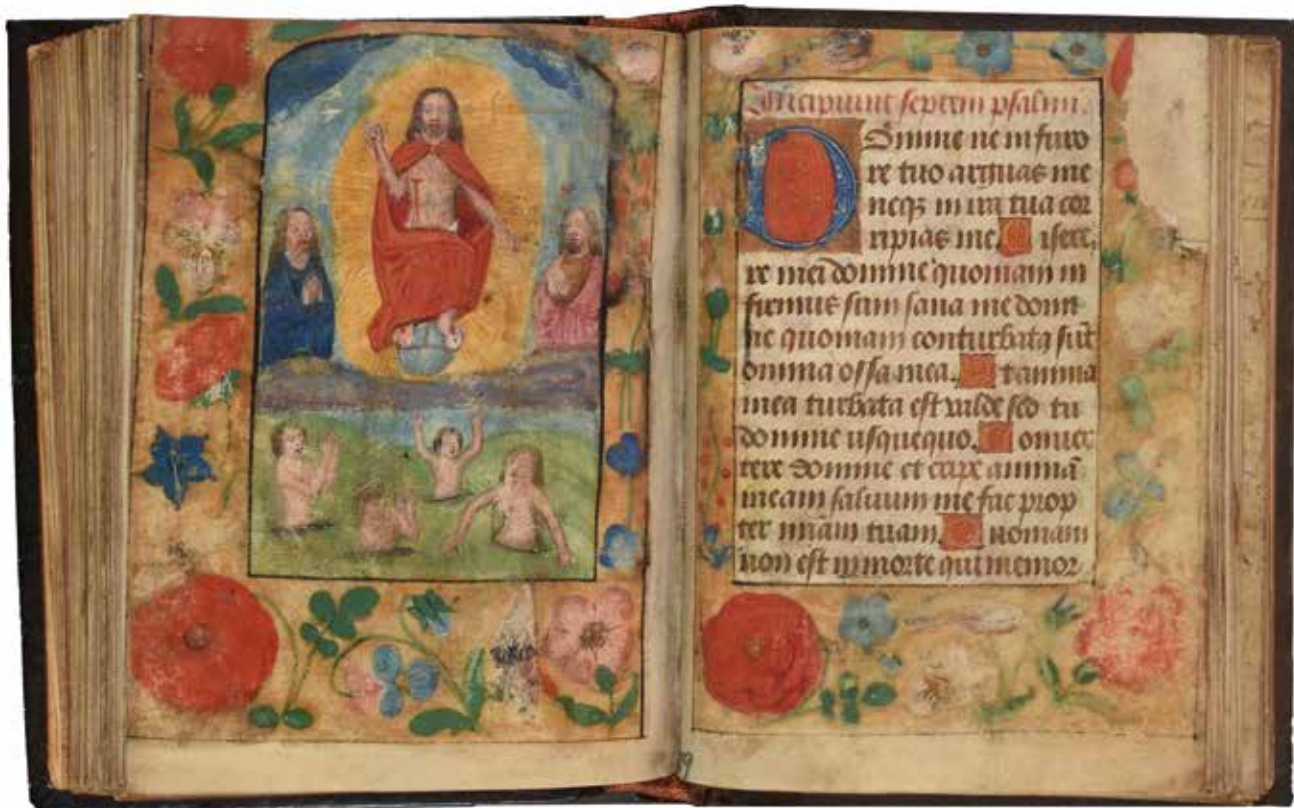 Incipiunt septem psalmi.
Domine ne in furo
re tuo arguas me
neqz in ira tua cor
ripias me. Misere,
re mei domine quoniam in
firmus sum sana me domi
ne quoniam conturbata sūt
omnia ossa mea. Et anima
mea turbata est valde sed tu
domine usquequo. Conuer
tere domine et eripe animā
meam saluum me fac prop
ter miam tuam. Quoniam
non est in morte qui memor